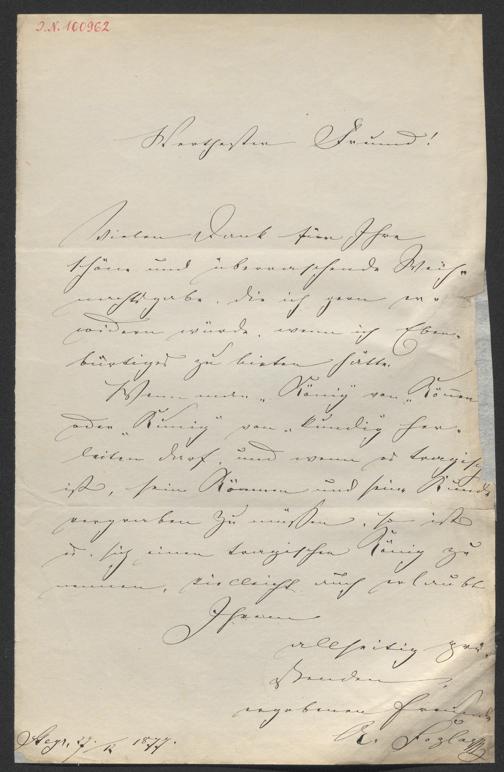 I.N. 160962
Werthester Freund!
Vielen Dank für Ihre
schöne und überraschende Weih-
nachtsgabe, die ich gern er-
widern würde, wenn ich Eben-
bürtiges zu bieten hätte.
Wenn man "König" von "Können
oder "Künig" von "kundig" her-
leiten darf, und wenn es tragisch
ist, sein Können und seine Kunde
vergraben zu müssen, so ist
es, sich einen tragischen König zu
nennen, vielleicht auch erlaubt
Ihrem
allseitig grü-
ßenden,
ergebenen Freunde
Steyr, 27/12 1877.